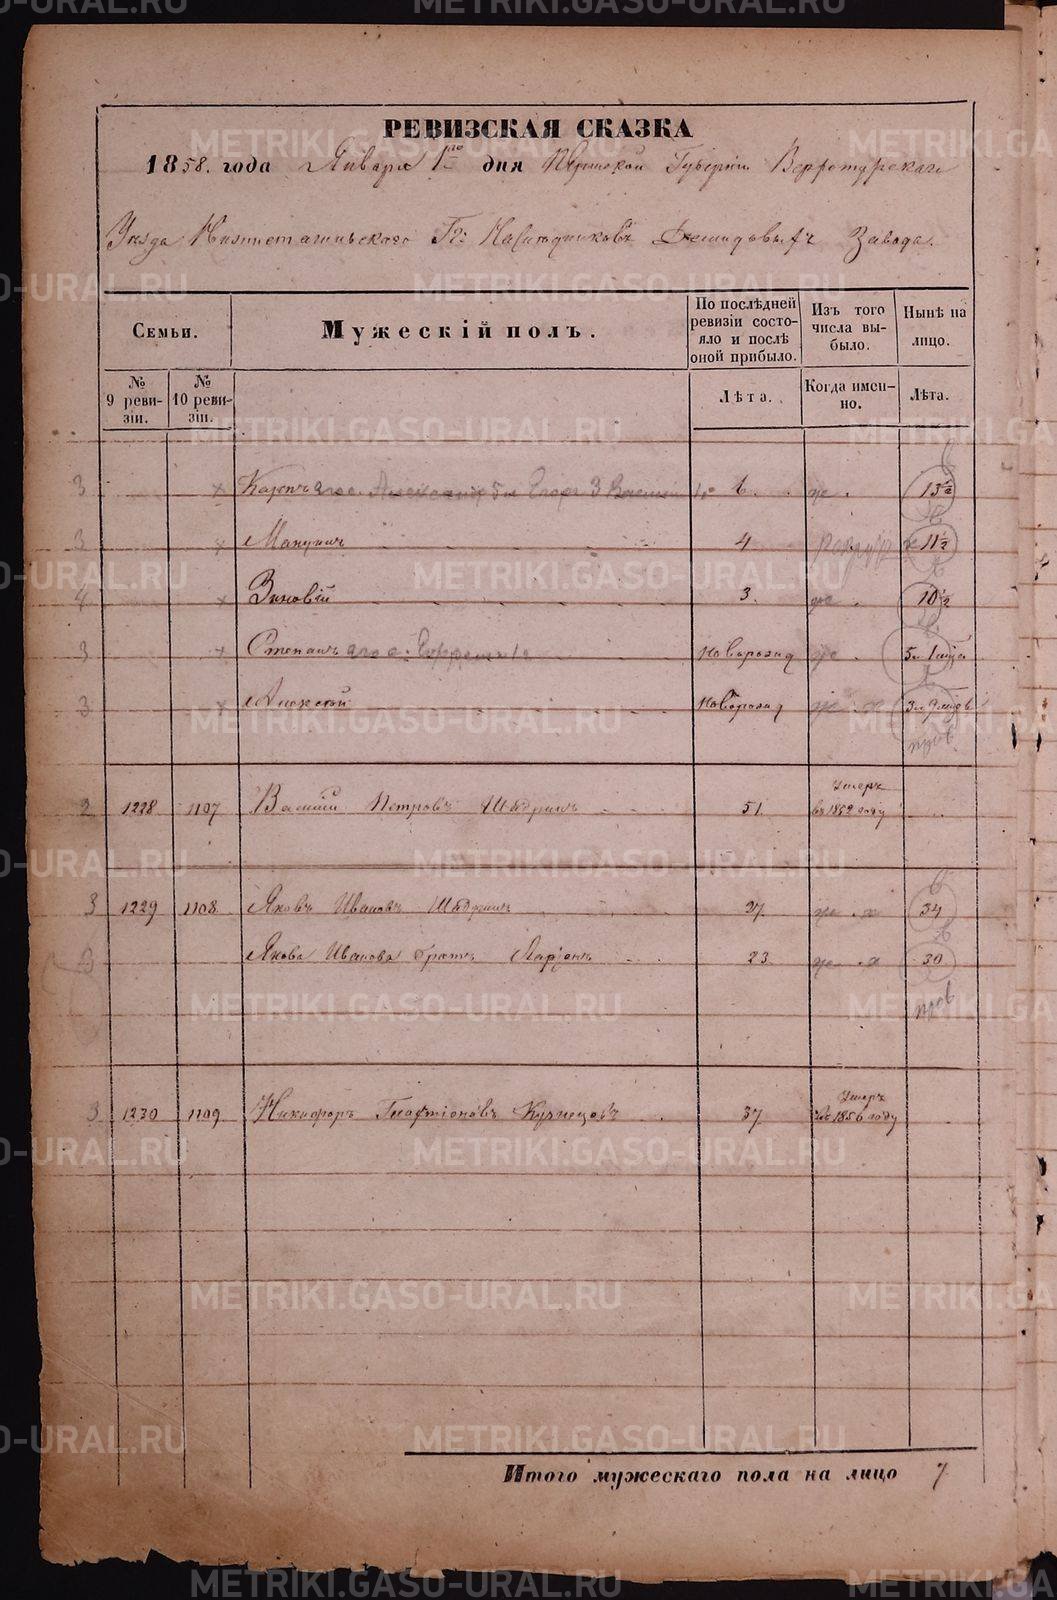 РЕВИЗСКАЯ СКАЗКА
1858. года Января 1го дня Пермской Губернiи Верхотурскаго
Уѣзда Нижнетагильскаго Гг: Наслѣдниковъ Демидовыхъ Завода.
Семьи.
Мужескiй полъ.
По послѣдней ревизiи состояло и послѣ оной прибыло.
Изъ того числа выбыло.
Нынѣ на лицо.
№ 9 ревизiи.
№ 10 ревизiи.
Лѣта.
Когда именно.
Лѣта.
3 × Карпъ 6. 13 1/2
3 × 4 11 1/2
4 × Зиновiй 3. 10 1/2
3 × Степанъ новорожд
3 × Алексѣй новорожд
пров
2 1228 1107 Василiй Петровъ Щедринъ 51. Умеръ въ 1852 году
3 1229 1108 Яковъ Ивановъ Щедринъ 27. 34
3 Якова Иванова братъ Ларiонъ 23 30
пров
3 1230 1109 Никифоръ Кузнецовъ 37 Умеръ въ 1856 году
Итого мужескаго пола на лицо 7
METRIKI.GASO-URAL.RU